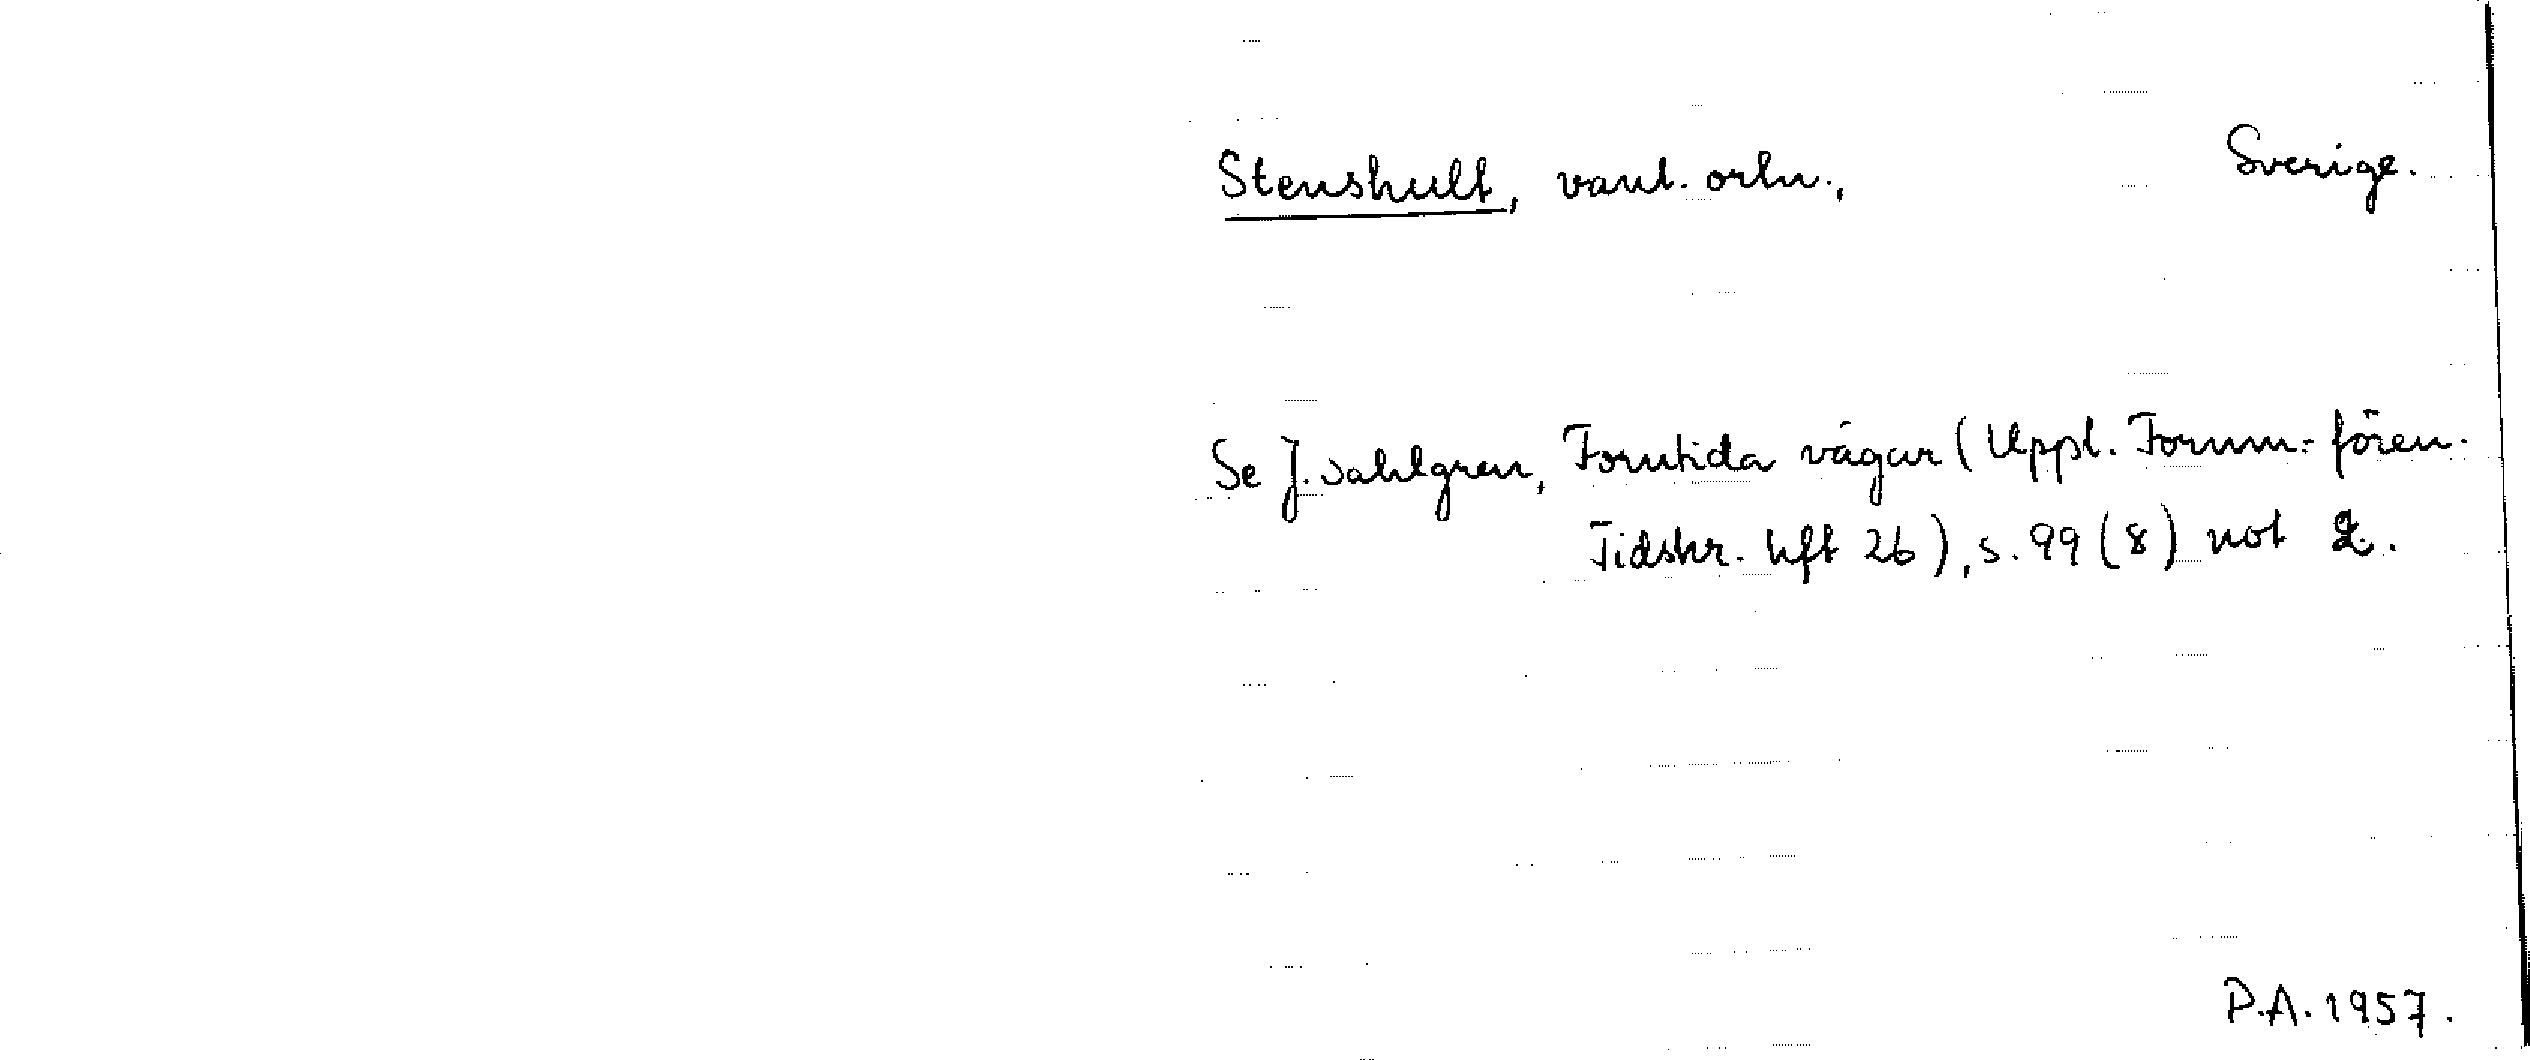 Stenshult, vanl. ortn., Sverige.
Se J. Sahlgren, Forntida vägar (Uppl. Fornm.-fören.
Tidskr. hft 26), s. 99 (8) not 2.
P.A. 1957.